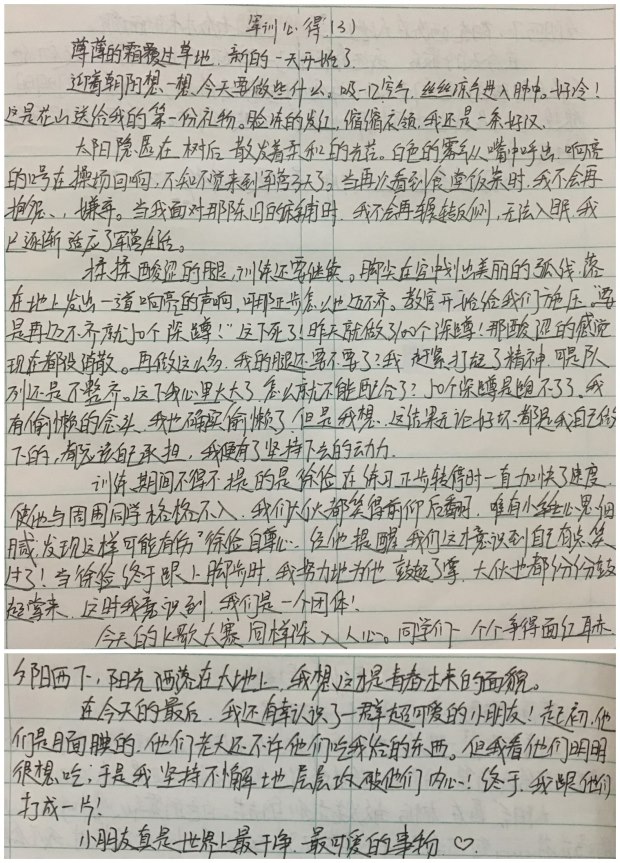 军训心得(3)
薄薄的霜覆过草地，新的一天开始了
迎着朝阳想一想，今天要做些什么。吸一口空气，丝丝凉气进入肺中。好冷！
这是花山送给我的第一份礼物。脸冻的发红，缩缩衣领，我还是一条好汉。
太阳隐居在树后，散发着柔和的光芒。白色的雾气从嘴中呼出，响亮
的口号在操场回响，不知不觉来到军营3天了。当再次看到食堂饭菜时，我不会再
抱怨、嫌弃。当我面对那陈旧的床铺时，我不会再辗转反侧，无法入眠，我
已逐渐适应了军营生活。
揉揉酸涩的腿，训练还要继续。脚尖在空中划出美丽的弧线，落
在地上发出一道响亮的声响，可那正步怎么也迈不齐。教官开始给我们施压，“要
是再迈不齐就50个深蹲！”这下死了！昨天就做了100个深蹲！那酸涩的感觉
现在都没消散。再做这么多，我的腿还要不要了？我赶紧打起了精神，可是队
列还是不整齐。这下我心里火大了，怎么就不能配合了？50个深蹲是跑不了了。我
有偷懒的念头，我也确实偷懒了，但是我想，这结果无论好坏，都是我自己做
下的，都应该自己承担，我便有了坚持下去的动力。
训练期间不得不提的是徐俭在练习正步转停时一直加快了速度，
使他与周围同学格格不入，我们大伙都笑得前仰后翻，唯有小维心思细
腻，发现这样可能有伤徐俭自尊心。经他提醒，我们这才意识到自己有点笑
过了！当徐俭终于跟上脚步时，我努力地为他鼓起了掌，大伙也都纷纷鼓
起掌来，这时我意识到，我们是一个团体！
今天的红歌大赛同样深入人心。同学们一个个争得面红耳赤
夕阳西下，阳光洒落在大地上，我想这才是青春本来的面貌。
在今天的最后，我还有幸认识了一群超可爱的小朋友！起初，他
们是腼腆的，他们老大还不许他们吃我给的东西。但我看他们明明
很想吃，于是我坚持不懈地层层攻破他们内心！终于，我跟他们
打成一片！
小朋友真是世界上最干净，最可爱的事物 ♡